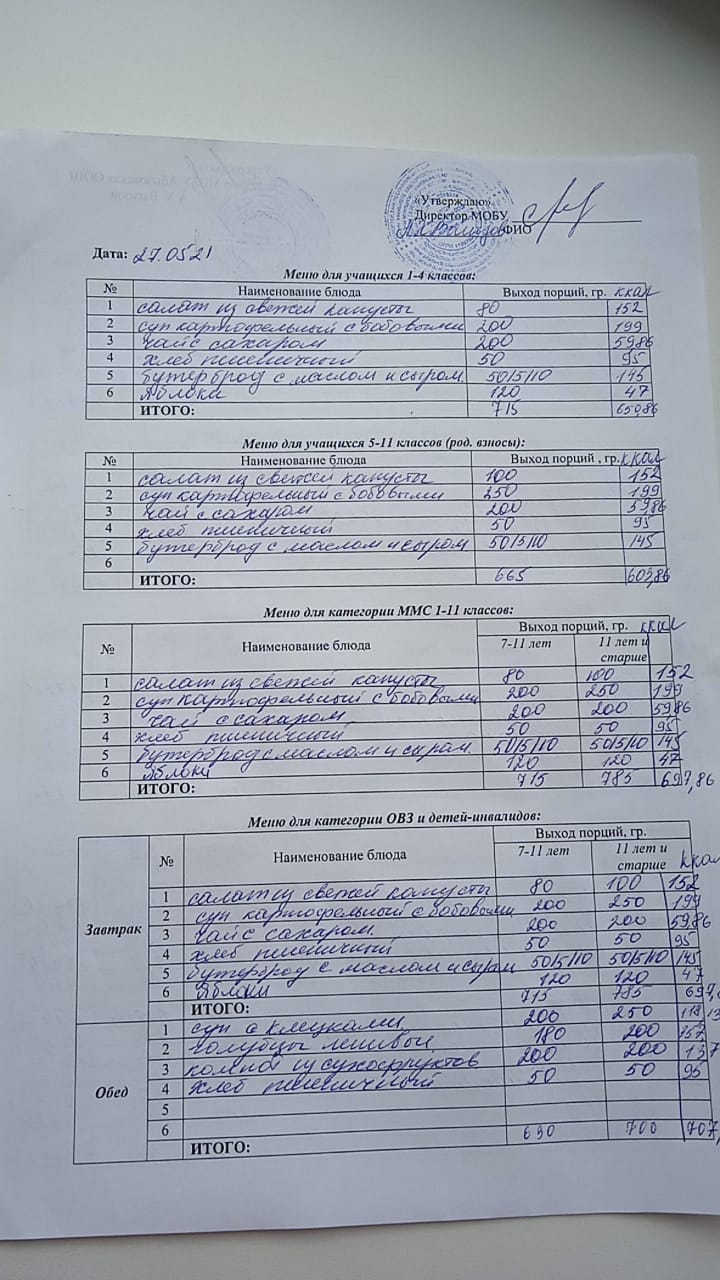 «Утверждаю»
Директор МОБУ
ФИО
Дата: 27.0521
Меню для учащихся 1-4 классов:
№ Наименование блюда Выход порций, гр. ккал
1 салат из свежей капусты 80 152
2 суп картофельный с бобовыми 200 199
3 чай с сахаром 200 59,86
4 хлеб пшеничный 50 95
5 бутерброд с маслом и сыром 50/5/10 145
6 Яблоки 120 47
ИТОГО: 715 650,86
Меню для учащихся 5-11 классов (род. взносы):
№ Наименование блюда Выход порций , гр. ккал
1 салат из свежей капусты 100 152
2 суп картофельный с бобовыми 250 199
3 чай с сахаром 200 59,86
4 хлеб пшеничный 50 95
5 бутерброд с маслом и сыром 50/5/10 145
6
ИТОГО: 665
Меню для категории ММС 1-11 классов:
№ Наименование блюда Выход порций, гр. ккал
7-11 лет 11 лет и старше
1 салат из свежей капусты 80 100 152
2 суп картофельный с бобовыми 200 250 199
3 чай с сахаром 200 200 59,86
4 хлеб пшеничный 50 50 95
5 бутерброд с маслом и сыром 50/5/10 50/5/10 145
6 Яблоки 120 120 47
ИТОГО: 715 785 697,86
Меню для категории ОВЗ и детей-инвалидов:
№ Наименование блюда Выход порций, гр.
7-11 лет 11 лет и старше ккал
Завтрак
1 салат из свежей капусты 80 100 152
2 суп картофельный с бобовыми 200 250 199
3 чай с сахаром 200 200 59,86
4 хлеб пшеничный 50 50 95
5 бутерброд с маслом и сыром 50/5/10 50/5/10 145
6 Яблоки 120 120 47
ИТОГО: 715 785
Обед
1 суп с клецками 200 250
2 голубцы ленивые 180 200
3 компот из сухофруктов 200 200
4 хлеб пшеничный 50 50 95
5
6 630 700 707,
ИТОГО: